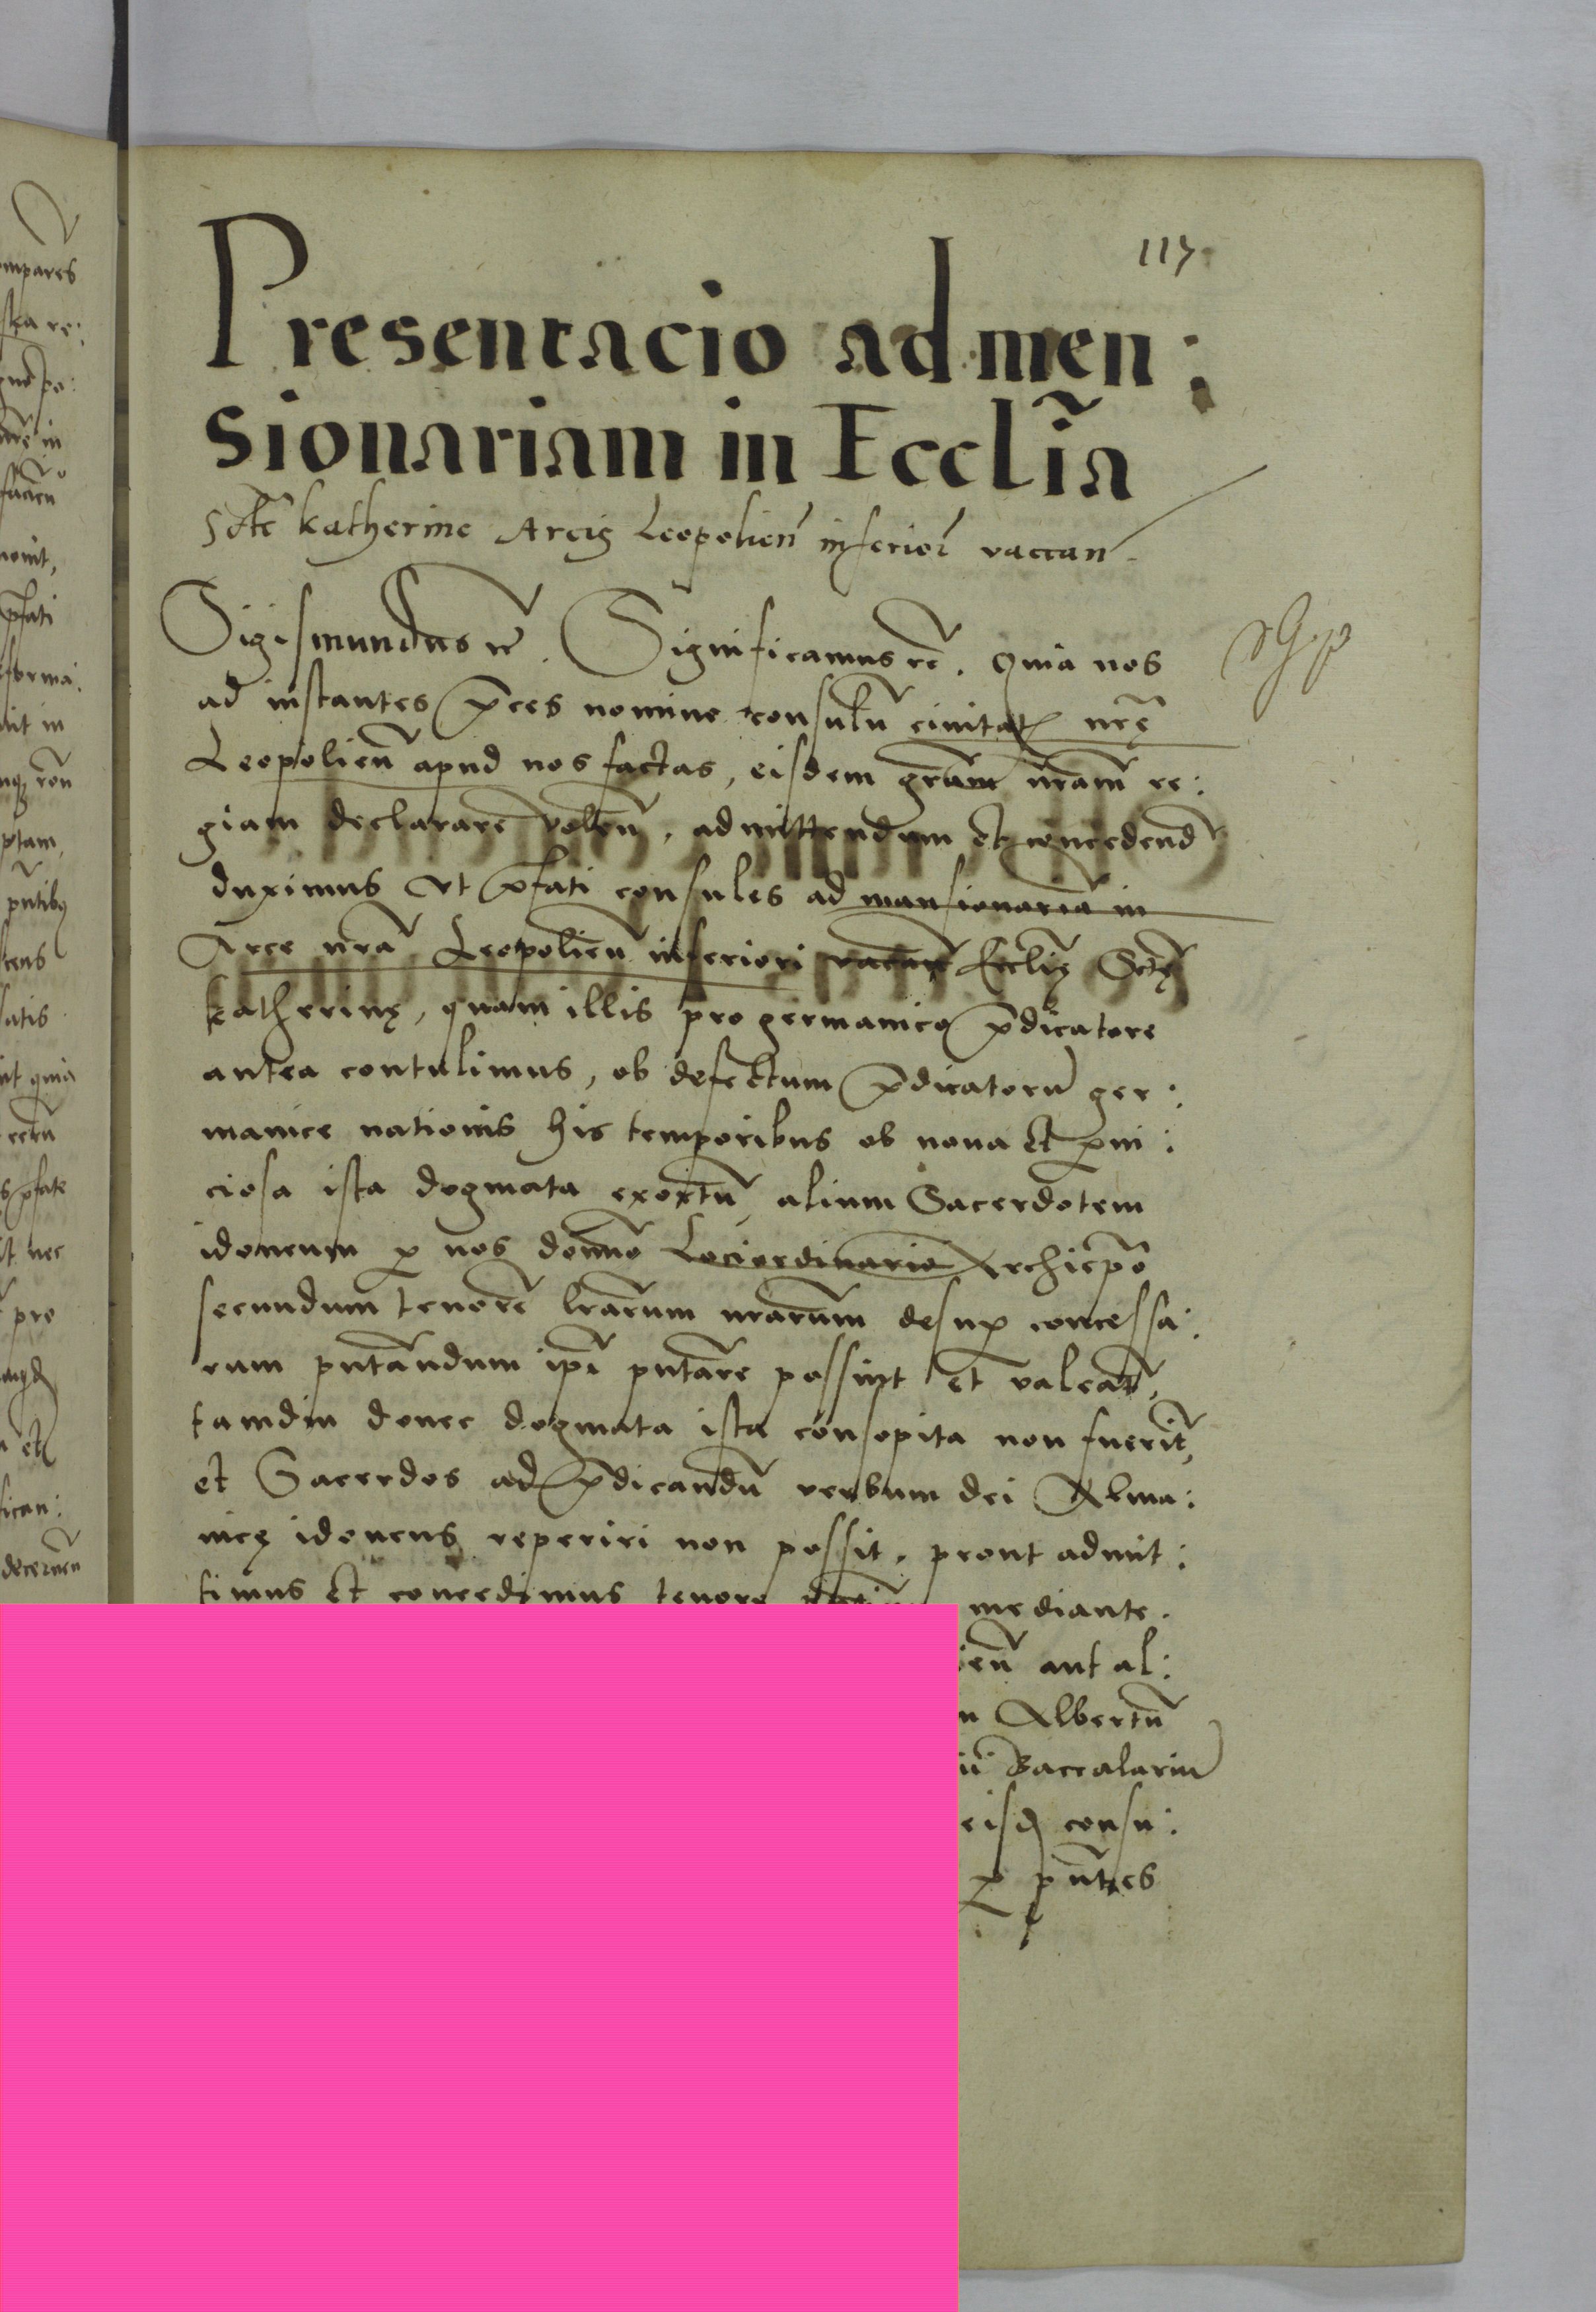 117
Presentacio ad men:
sionariam in Ecclia
Scte Katherine Arcis Leopolien inferior vaccan
Sigismundus rc. Significamus rc. Quia nos
ad instantes preces nomine consulu civitatis nrę
Leopolien apud nos factas, eisdem gram nram re:
giam declarare volen, admittendum et concedend
duximus Ut prefati consules ad mansionaria in
Arce nra Leopolien inferiori vacan Ecclię Sctę
Katherinę, quam illis pro germanico predicatore
antea contulimus, ob defectum predicatoru ger:
manice nationis his temporibus ob nova et perni:
ciosa ista dogmata exortu alium Sacerdotem
idoneum per nos domno Loci ordinario Archiepo
secundum tenore lrarum nrarum desuper concessa:
rum pntandum ipi pntare possint et valeant,
tamdiu donec dogmata ista consopita non fuerit,
et Sacerdos ad predicandu verbum dei Alma:
nicę idoneus reperiri non possit. prout admit:
timus et concedimus tenore mediante.
ien aut al:
Albertu
Baccalariu
eisd consu:
per pntes
ompares
sta re:
in
novit,
prefati
forma:
it in
ptam,
pntibus
atis
it quia
prefate
it nec
pro
et
fican:
decernen